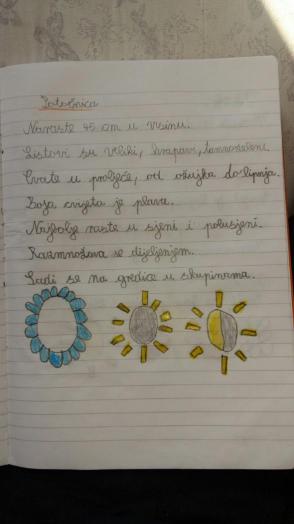 Potočnica
Naraste 45 cm u visinu.
Listovi su veliki, hrapavi, tamnozeleni.
Cvate u proljeće, od ožujka do lipnja.
Boja cvijeta je plava.
Najbolje raste u sjeni i polusjeni.
Razmnožava se dijeljenjem.
Sadi se na gredice u skupinama.